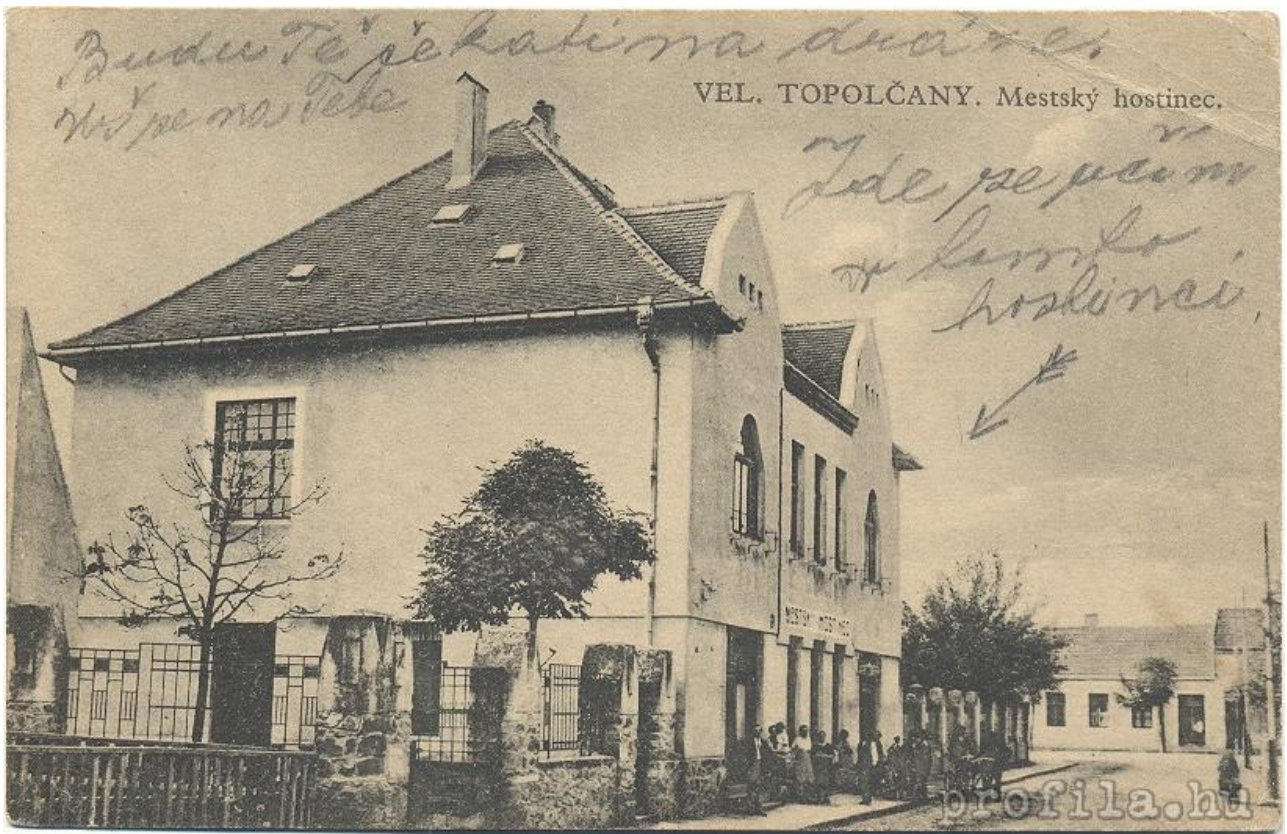 Budu Tě čekati na dráze.
se na Tebe
VEL. TOPOLČANY. Mestský hostinec.
Zde se učím
v tomto
hostinci,
MESTSKÝ HOSTINEC
profila.hu